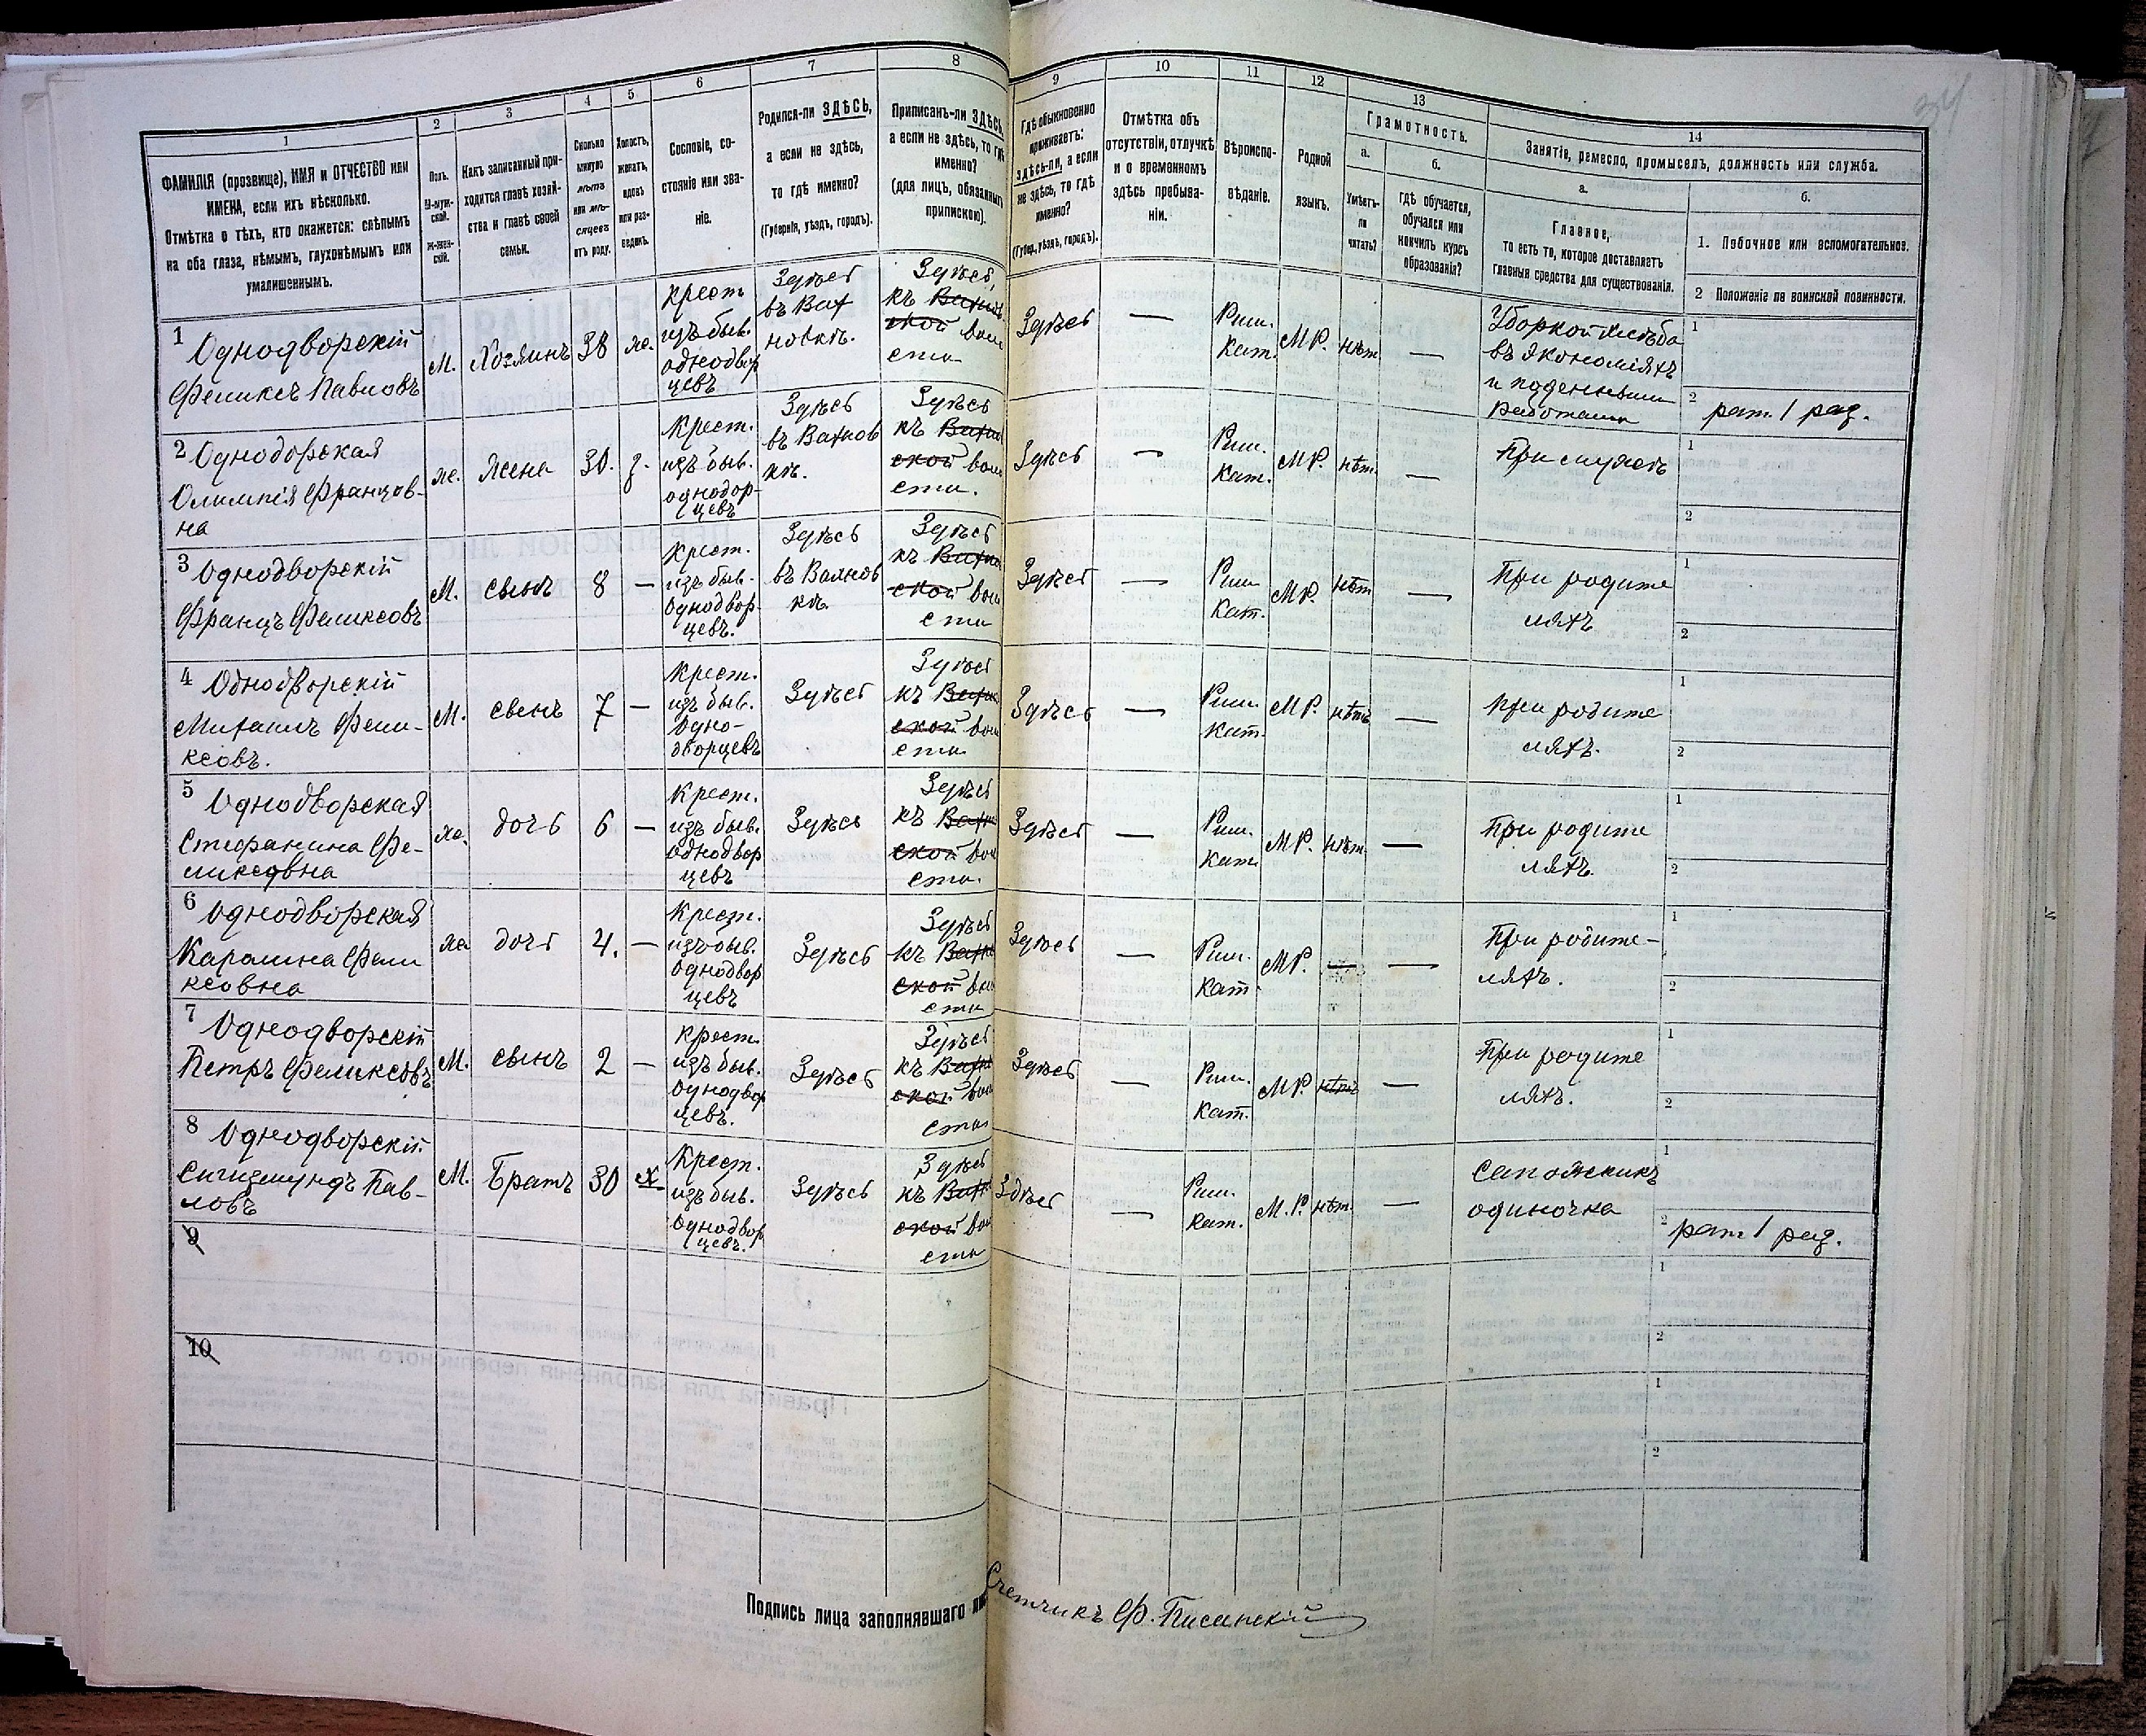 34
1
2
3
4
5
6
7
8
9
10
11
12
13
14
ФАМИЛІЯ (прозвище), ИМЯ и ОТЧЕСТВО или
ИМЕНА, если ихъ нѣсколько.
Отмѣтка о тѣхъ, кто окажется: слѣпымъ
на оба глаза, нѣмымъ, глухонѣмымъ или
умалишеннымъ.
Полъ.
М-муж-
ской.
Ж-жен-
скій.
Какъ записанный при-
ходится главѣ хозяй-
ства и главѣ своей
семьи.
Сколько
минуло
лѣтъ
или мѣ-
сяцевъ
отъ роду.
Холостъ,
женатъ,
вдовъ
или раз-
веденъ.
Сословіе, со-
стояніе или зва-
ніе.
Родился-ли ЗДѢСЬ,
а если не здѣсь,
то гдѣ именно?
(Губернія, уѣздъ, городъ).
Приписанъ-ли ЗДѢСЬ,
а если не здѣсь, то гдѣ
именно?
(для лицъ, обязанныхъ
припискою).
Гдѣ обыкновенно
проживаетъ:
ЗДѢСЬ-ли, а если
не здѣсь, то гдѣ
именно?
(Губер., уѣздъ, городъ).
Отмѣтка объ
отсутствіи, отлучкѣ
и о временномъ
здѣсь пребыва-
ніи.
Вѣроиспо-
вѣданіе.
Родной
языкъ.
Грамотность.
а.
б.
Умѣетъ-
ли
читать?
гдѣ обучается,
обучался или
кончилъ курсъ
образованія?
Занятіе, ремесло, промыселъ, должность или служба.
а.
б.
Главное,
то есть то, которое доставляетъ
главныя средства для существованія.
1. Побочное или вспомогательное.
2 Положеніе по воинской повинности.
1 Однодворскій
Феликсъ Павловъ
М.
Хозяинъ
38
же.
Крест
изъ быв.
однодвор
цевъ
Здѣсь
въ Вах
новкѣ.
Здѣсь,
къ
ской вол
сти
Здѣсь
—
Рим.
Кат.
МР.
нѣт
—
Уборкой хлѣба
въ экономіяхъ
и поденными
работами
1
2
рат. 1 раз.
2 Однодорская
Олимпія Францов-
на
же.
Жена
30.
з.
Крест.
изъ быв.
однодор-
цевъ
Здѣсь
въ Вахнов
кѣ.
Здѣсь
къ
ской вол
сти.
Здѣсь
—
Рим.
Кат.
МР.
нѣт.
—
При мужѣ
1
2
3 Однодворскій
Францъ Феликсовъ
М.
сынъ
8
—
Крест.
изъ быв.
Однодвор-
цевъ.
Здѣсь
въ Вахнов
кѣ.
Здѣсь
къ
ской вол
сти
Здѣсь
—
Рим
Кат.
МР.
нѣт
—
При родите
ляхъ
1
2
4 Однодворскій
Михаилъ Фели-
ксовъ.
М.
сынъ
7
—
Крест.
изъ быв.
Одно-
дворцевъ
Здѣсь
Здѣсь
къ
ской вол
сти
Здѣсь
—
Рим.
Кат.
МР.
нѣтъ
—
при родите
ляхъ.
1
2
5 Однодворская
Стефанина Фе-
ликсовна
же.
дочь
6
—
Крест.
изъ быв.
однодвор
цевъ
Здѣсь
Здѣсь
къ
ской вол
сти.
Здѣсь
—
Рим.
Кат.
МР.
нѣт.
—
При родите
ляхъ.
1
2
6 Однодворская
Каралина Фели
ксовна
же
дочь
4.
—
Крест.
изъ быв.
Однодвор
цевъ
Здѣсь
Здѣсь
къ
ской вол
сти
Здѣсь
—
Рим.
Кат.
МР.
—
—
При родите-
ляхъ.
1
2
7 Однодворскій
Петръ Феликсовъ
М.
сынъ
2
—
Крест
изъ быв.
Однодвор
цевъ.
Здѣсь
Здѣсь
къ
ской вол
сти
Здѣсь
—
Рим.
Кат.
МР.
нѣтъ
—
При родите
ляхъ.
1
2
8 Однодворскій
Сигизмундъ Пав-
ловъ
М.
Братъ
30
х
Крест.
изъ быв.
Однодвор
цевъ.
Здѣсь
Здѣсь
къ
ской вол
сти
Здѣсь
—
Рим.
Кат.
М.Р.
нѣт.
—
Сапожникъ
одиночка
1
2
рат 1 раз.
9
1
2
10
1
2
Подпись лица заполнявшаго
Счетчикъ Ф. Писанскій